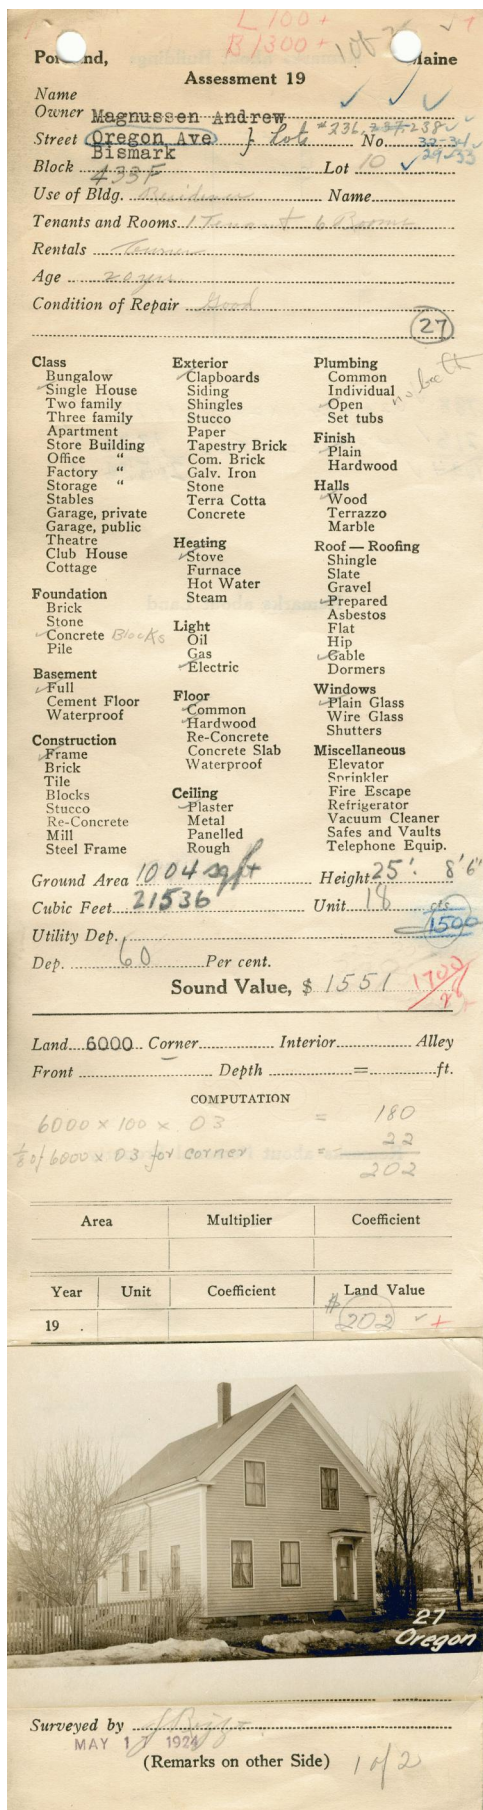 L 100 +
B 1300 +
Portland, Maine
Assessment 19
Name
Owner Magnussen Andrew
Street Oregon Ave } Lots #236, 237, 238 No. 32-34
Bismark 29-33
Block 433 F Lot 10
Use of Bldg. Residence Name
Tenants and Rooms 1 Tenant 6 Rooms
Rentals Owner
Age 20 yrs
Condition of Repair Good
27
Class
Bungalow
Single House
Two family
Three family
Apartment
Store Building
Office "
Factory "
Storage "
Stables
Garage, private
Garage, public
Theatre
Club House
Cottage
Foundation
Brick
Stone
Concrete Blocks
Pile
Basement
Full
Cement Floor
Waterproof
Construction
Frame
Brick
Tile
Blocks
Stucco
Re-Concrete
Mill
Steel Frame
Exterior
Clapboards
Siding
Shingles
Stucco
Paper
Tapestry Brick
Com. Brick
Galv. Iron
Stone
Terra Cotta
Concrete
Heating
Stove
Furnace
Hot Water
Steam
Light
Oil
Gas
Electric
Floor
Common
Hardwood
Re-Concrete
Concrete Slab
Waterproof
Ceiling
Plaster
Metal
Panelled
Rough
Plumbing
Common
Individual
Open no bath
Set tubs
Finish
Plain
Hardwood
Halls
Wood
Terrazzo
Marble
Roof — Roofing
Shingle
Slate
Gravel
Prepared
Asbestos
Flat
Hip
Gable
Dormers
Windows
Plain Glass
Wire Glass
Shutters
Miscellaneous
Elevator
Sprinkler
Fire Escape
Refrigerator
Vacuum Cleaner
Safes and Vaults
Telephone Equip.
Ground Area 1004 sq ft Height 25'. 8'6"
Cubic Feet 21536 Unit 18 cts.
1500
Utility Dep.
Dep. 60 Per cent.
Sound Value, $ 1551 1700
Land 6000 Corner Interior Alley
Front Depth = ft.
COMPUTATION
6000 x 100 x .03 = 180
1/8 of 6000 x 03 for corner = 22
202
Area Multiplier Coefficient
Year Unit Coefficient Land Value
19 . $ 202 +
27
Oregon
Surveyed by
MAY 17 1924
(Remarks on other Side) 1 of 2